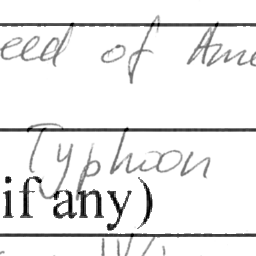 eed of Ame
Typhoon
if any)